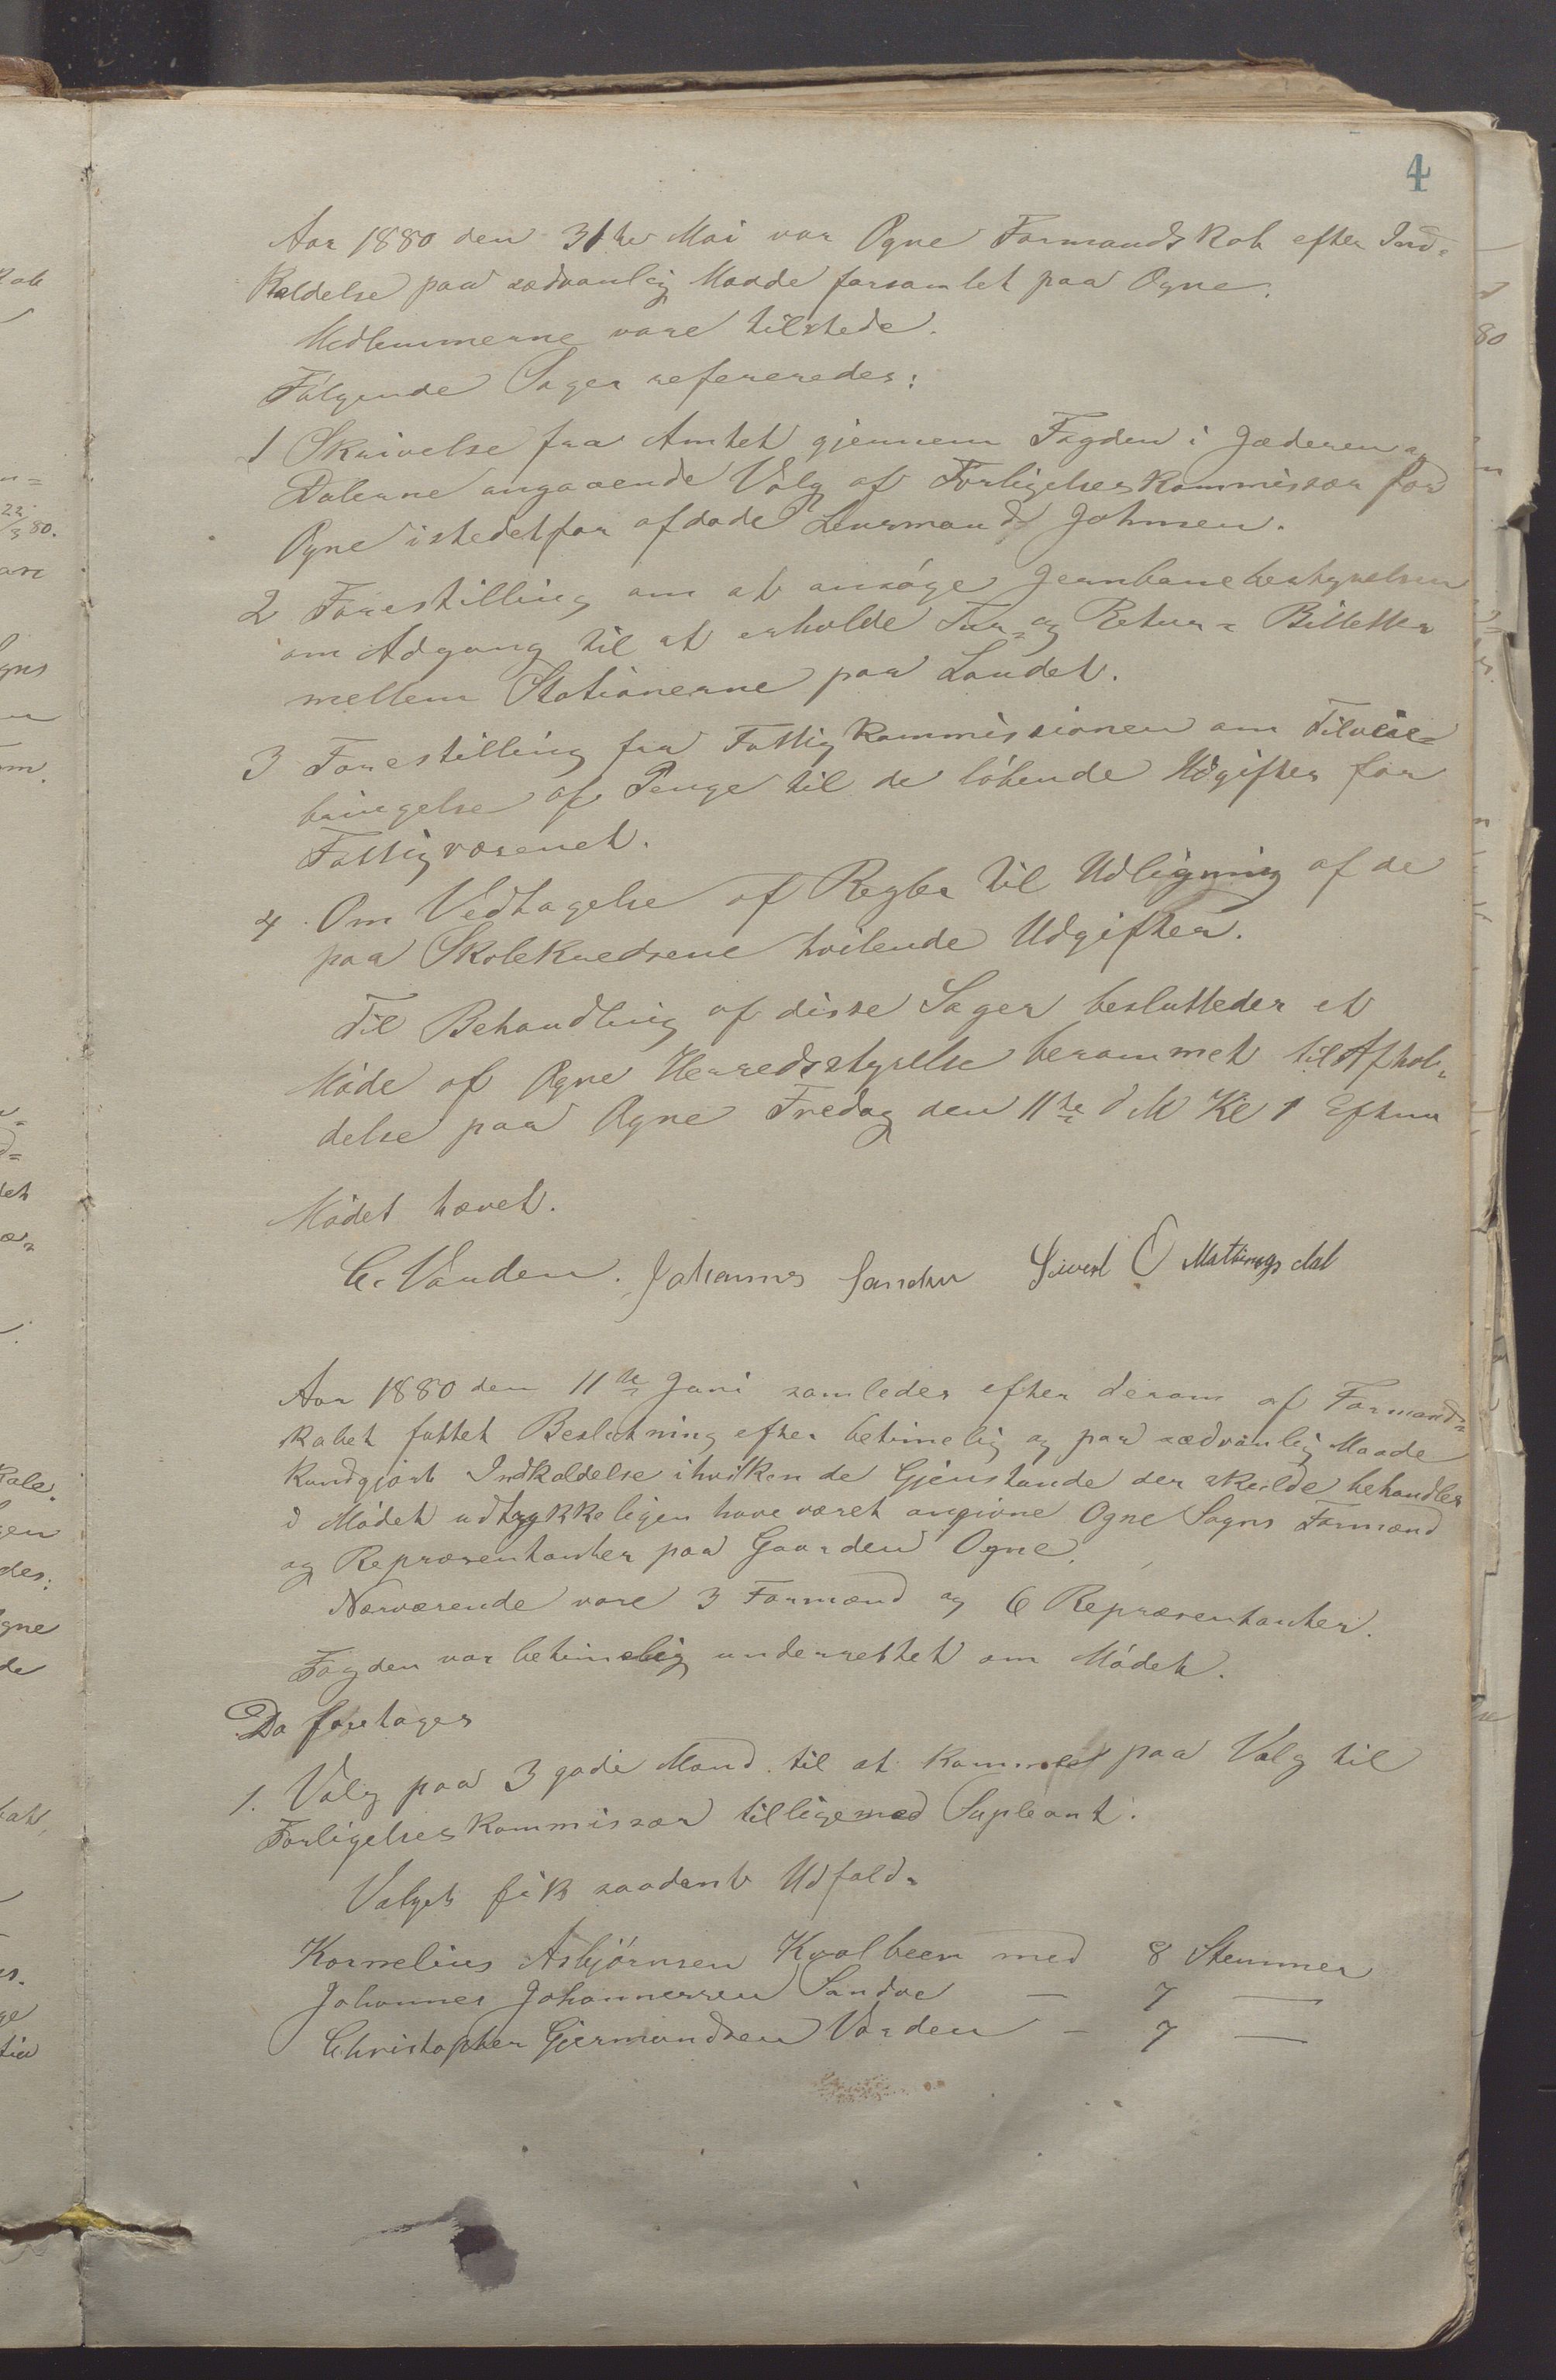 4
Aar 1880 den 31te Mai var Ogne Formandskab efter Ind-
kaldelse paa sedvanlig Maade forsamlet paa Ogne.
Medlemmerne vare tilstede.
Følgende Sager refereredes:
1 Skrivelse fra Amtet gjennem Fogden i Jæderen og
Dalerne angaaende Valg af Forligelseskommissær for
Ogne istedetfor afdøde Lensmand Johnsen.
2 Forestilling om at ansøge Jernbanebestyrelsen
om Adgang til at erholde Tur- og Retur- Billetter
mellem Stationerne paa Landet.
3 Forestilling fra Fattigkommissionen om Tilveie-
bringelse af Penge til de løbende Udgifter for
Fattigvæsenet.
4 Om Vedtagelse af Regler til Udligning af de
paa Skolekredsene hvilende Udgifter.
Til Behandling af disse Sager beslutteder et
Møde af Ogne Herredsstyrelse berammet til Afhol-
delse paa Ogne Fredag den 11te d M Kl 1 Efterm
Mødet hævet.
C. Varden. Johannes Sandve Sivert O Matningsdal
Aar 1880 den 11te Juni samledes efter derom af Formand-
skabet fattet Beslutning efter betimelig og paa sædvanlig Maade
kundgjort Indkaldelse i hvilken de Gjenstande der skulde behandles
i Mødet udtrykkeligen have været angivne Ogne Sogns Formænd
og Repræsentanter paa Gaarden Ogne.
Nærværende vare 3 Formænd og 6 Repræsentanter.
Fogden var betimelig underrettet om Mødet.
Da foretages
1. Valg paa 3 gode Mænd til at komme paa Valg til
Forligelseskommissær tilligemed Supleant.
Valget fik saadant Udfald.
Kornelius Asbjørnsen Kvalbeen med 8 Stemmer
Johannes Johannessen Sandve — 7 —
Christopher Gjermundsen Varden — 7 —